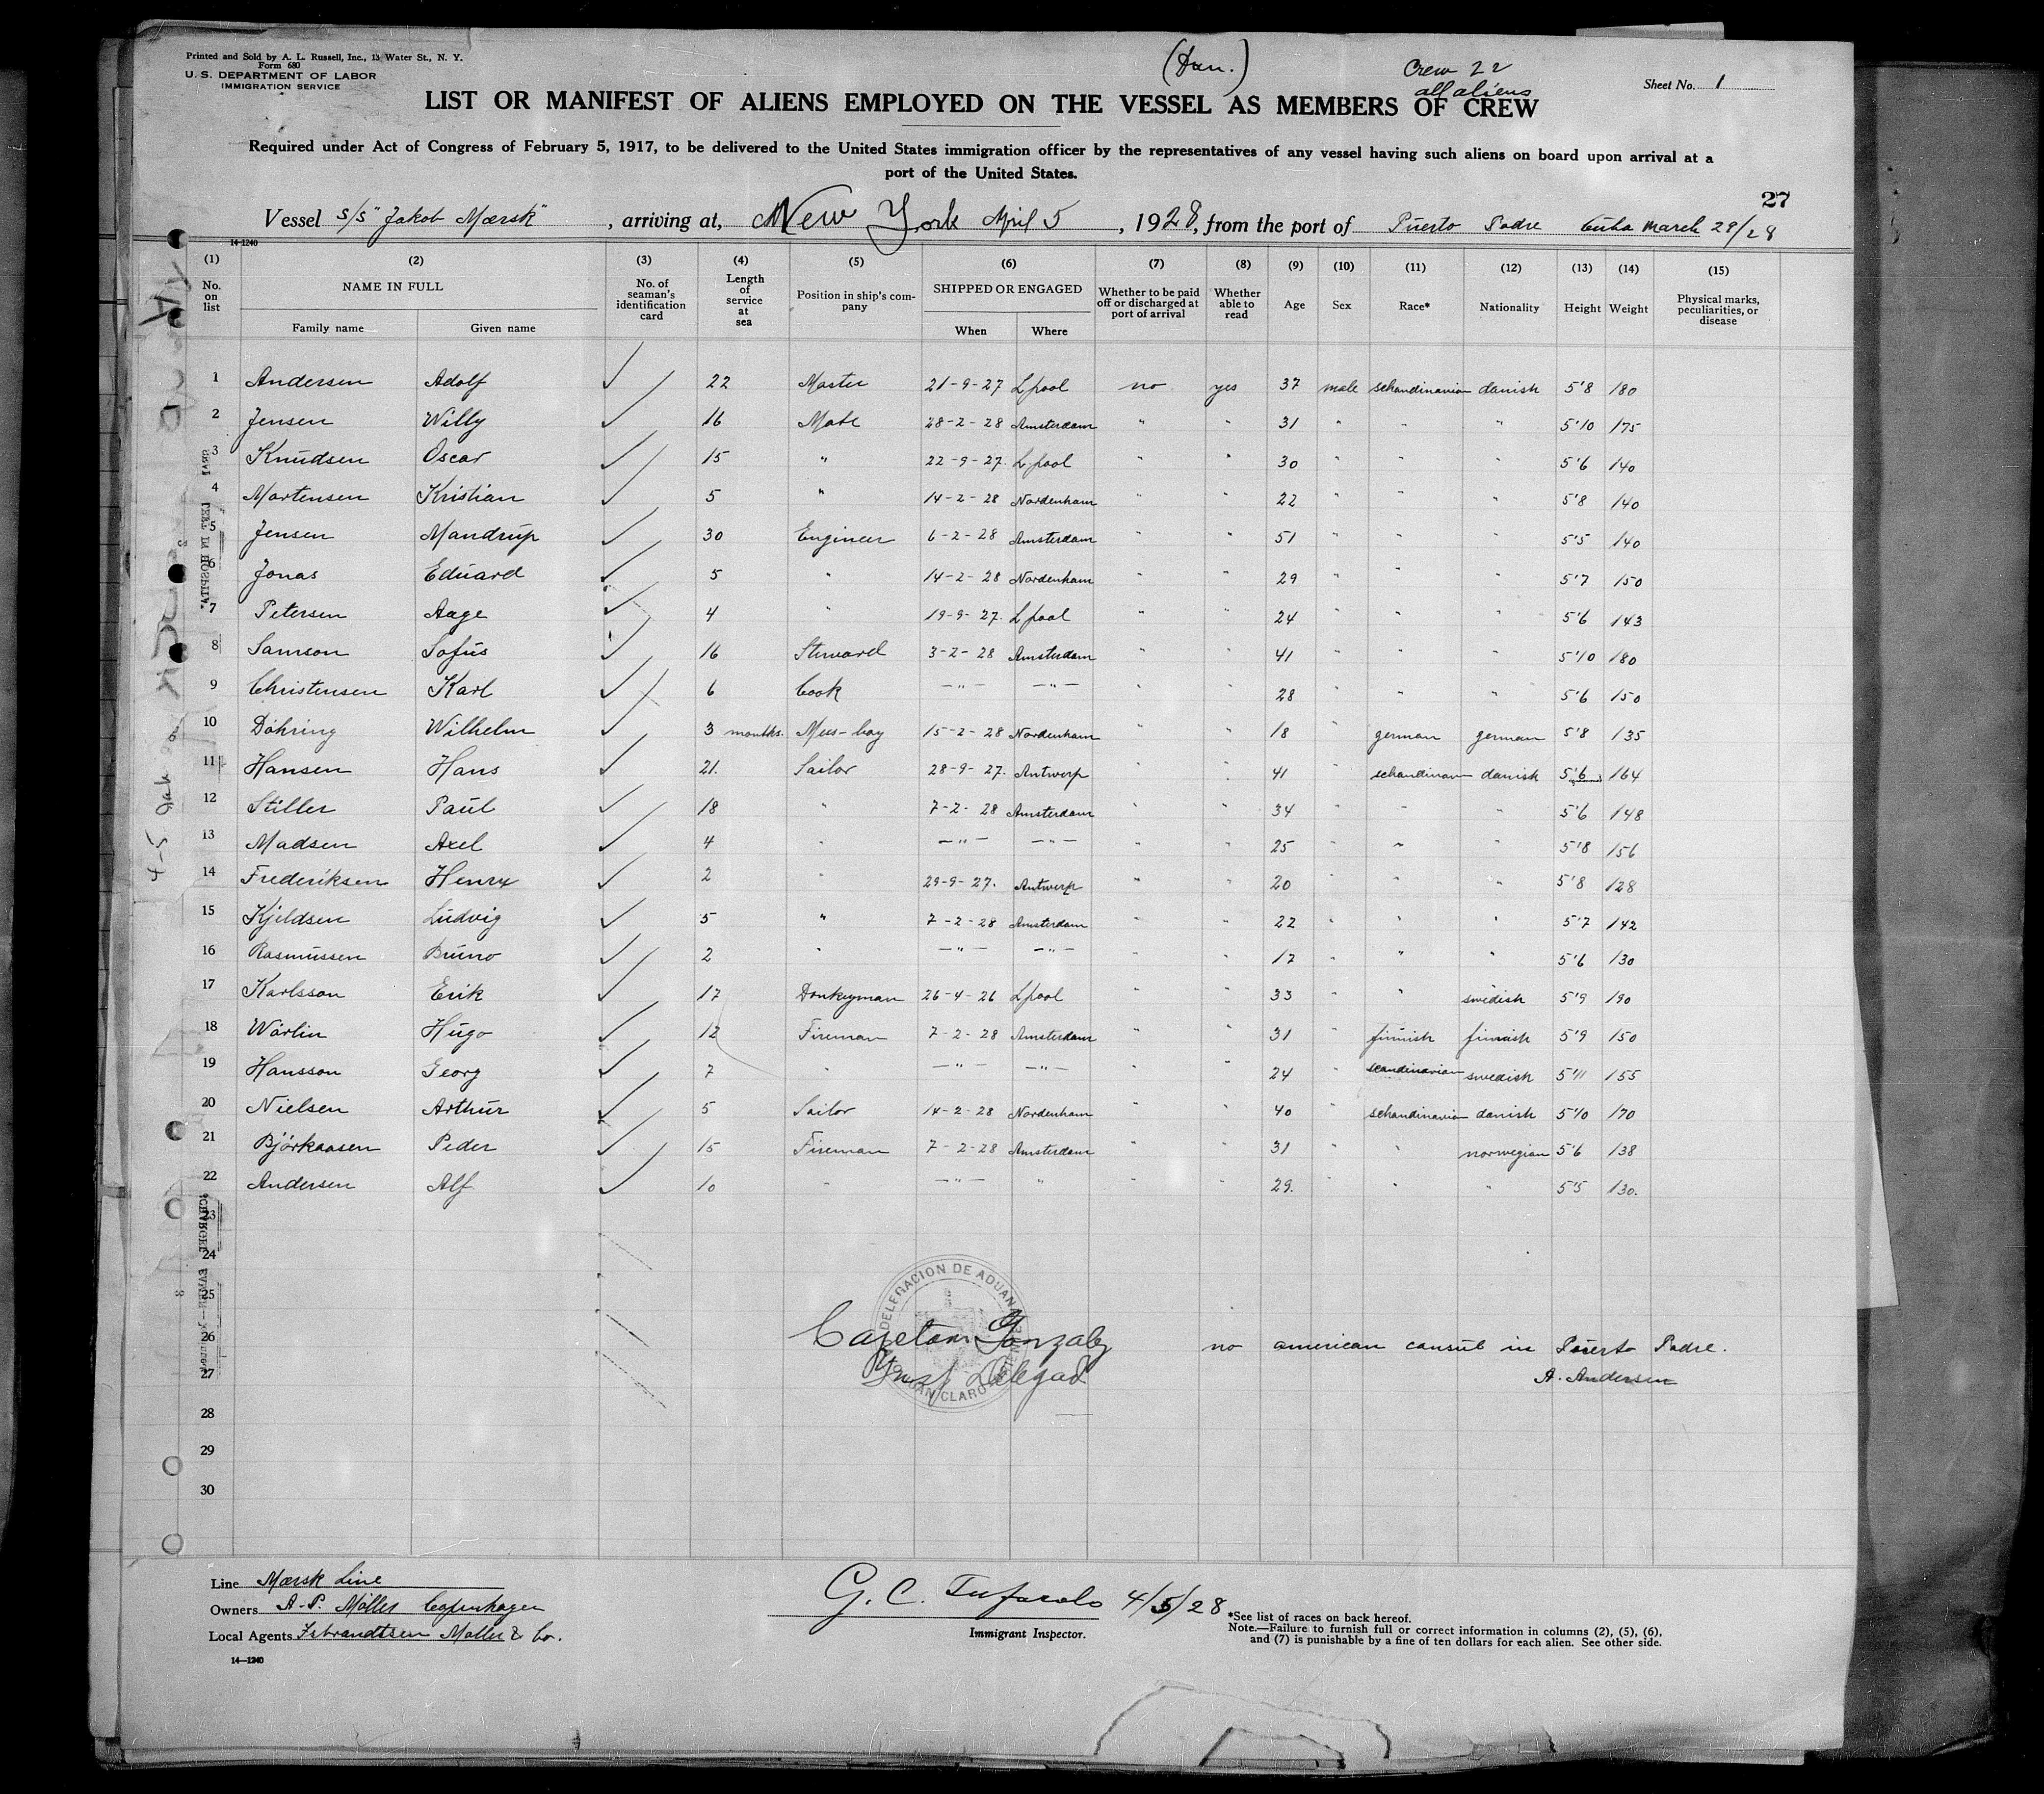 Printed and Sold by A. L. Russell, Inc., 13 Water St., N. Y.
Form 680
U. S. DEPARTMENT OF LABOR
IMMIGRATION SERVICE
(Dan.)
Crew 22
all aliens
Sheet No. 1
LIST OR MANIFEST OF ALIENS EMPLOYED ON THE VESSEL AS MEMBERS OF CREW
Required under Act of Congress of February 5, 1917, to be delivered to the United States immigration officer by the representatives of any vessel having such aliens on board upon arrival at a
port of the United States.
27
Vessel S/S "Jakob Mærsk", arriving at, New York April 5, 1928, from the port of Puerto Padre Cuba March 29/28
14-1240
(1) (2) (3) (4) (5) (6) (7) (8) (9) (10) (11) (12) (13) (14) (15)
No. on list NAME IN FULL Family name Given name No. of seaman's identification card Length of service at sea Position in ship's company SHIPPED OR ENGAGED When Where Whether to be paid off or discharged at port of arrival Whether able to read Age Sex Race* Nationality Height Weight Physical marks, peculiarities, or disease
1 Andersen Adolf 22 Master 21-9-27 Lpool no yes 37 male schandinavian danish 5'8 180
2 Jensen Willy 16 Mate 28-2-28 Amsterdam " " 31 " " " 5'10 175
3 Knudsen Oscar 15 " 22-9-27. Lpool " " 30 " " " 5'6 140
4 Mortensen Kristian 5 " 14-2-28 Nordenham " " 22 " " " 5'8 140
5 Jensen Mandrup 30 Engineer 6-2-28 Amsterdam " " 51 " " " 5'5 140
6 Jonas Eduard 5 " 14-2-28 Nordenham " " 29 " " " 5'7 150
7 Petersen Aage 4 " 19-9-27. Lpool " " 24 " " " 5'6 143
8 Samson Sofus 16 Steward 3-2-28 Amsterdam " " 41 " " " 5'10 180
9 Christensen Karl 6 Cook —"— —"— " " 28 " " " 5'6 150
10 Döhring Wilhelm 3 months. Mess-boy 15-2-28 Nordenham " " 18 " german german 5'8 135
11 Hansen Hans 21. Sailor 28-9-27. Antwerp " " 41 " schandinavian danish 5'6 164
12 Stiller Paul 18 " 7-2-28 Amsterdam " " 34 " " " 5'6 148
13 Madsen Axel 4 " —"— —"— " " 25 " " " 5'8 156
14 Frederiksen Henry 2 " 29-9-27. Antwerp " " 20 " " " 5'8 128
15 Kjeldsen Ludvig 5 " 7-2-28 Amsterdam " " 22 " " " 5'7 142
16 Rasmussen Bruno 2 " —"— —"— " " 17 " " " 5'6 130
17 Karlsson Erik 17 Donkeyman 26-4-26 Lpool " " 33 " " swedish 5'9 190
18 Wärlin Hugo 12 Fireman 7-2-28 Amsterdam " " 31 " finnish finnish 5'9 150
19 Hansson Georg 7 " —"— —"— " " 24 " scandinavian swedish 5'11 155
20 Nielsen Arthur 5 Sailor 14-2-28 Nordenham " " 40 " schandinavian danish 5'10 170
21 Björkaasen Peder 15 Fireman 7-2-28 Amsterdam " " 31 " " norwegian 5'6 138
22 Andersen Alf 10 " —"— " " " 29. " " " 5'5 130.
23
24
25
26
27
28
29
30
DELEGACION DE ADUANA
Cayetano Gonzalez
no american consul in Puerto Padre.
A. Andersen
Line Mærsk Line
Owners A. P. Möller Copenhagen
Local Agents Isbrandtsen Moller & Co.
14—1240
4/5/28
Immigrant Inspector.
*See list of races on back hereof.
Note.—Failure to furnish full or correct information in columns (2), (5), (6),
and (7) is punishable by a fine of ten dollars for each alien. See other side.